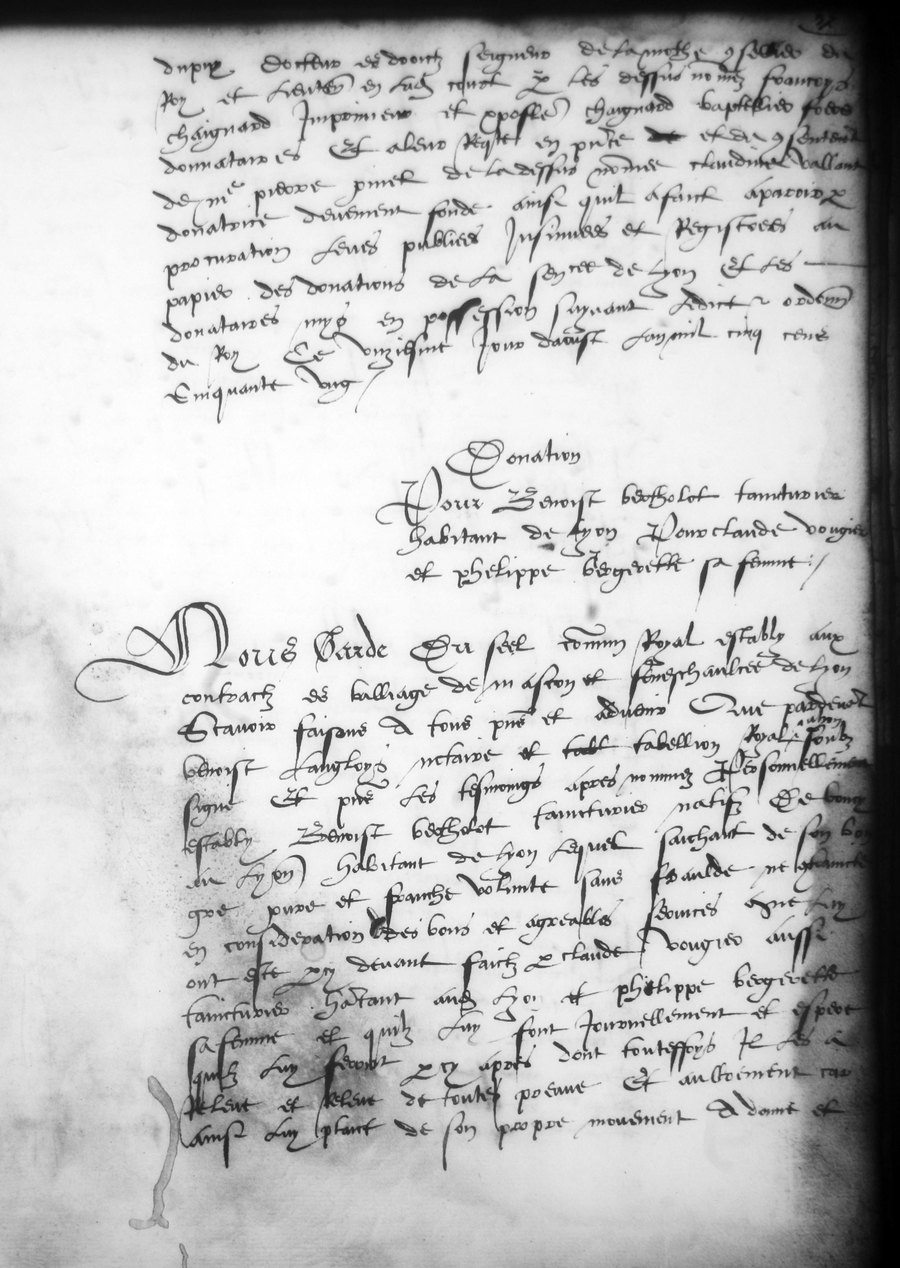 dupuy docteur es droictz seigneur de la mothe conseiller du
Roy et lieuten en lad court p les dessus nomez francoys
chaignard Imprimeur et chaignard freres
donnataires Et a leur Reqte en pnce et du consentement
de me pierre pinet de la dessus nomee claudine vallant
donatrice deuement fonde ainsi quil a faict aparoir p
procuration leues publiees Insinuees et Registrees au
papier des donations de la senee de lyon Et les
donataires mys en possession suyuant ledict et ordonn
du Roy Ce unziesme Jour daoust Lan mil cinq cens
Cinquante ung /
Donation
Pour Benoist berthelot taincturier
habitant de lyon Pour claude vougier
et phelippe bergerette sa femme /
Nous Garde Du seel comun Royal estably aux
contractz es balliage de mascon et seneschaulcee de lyon
Scauoir faisons A tous pns et aduenir Que pardeuant
benoist Langloys notaire et tabellion Royal soubz
signe Et pns les tesmoings apres nommez Personnellement
estably Benoist berthelot taincturier natifz De
au lyon habitant de lyon lequel saichant de son bon
gre pure et franche volunte sans fraulde ne
en consideration des bons et agreables seruices que luy
ont este cy deuant faictz p claude vougier aussi
taincturier hatant aud lyon et phelippe bergerette
sa femme et quilz luy font Journellement et espere
quilz luy feront cy apres dont touteffoys Il les a
Releue et Releue de toutes preuue Et aultrement car
ainsi luy plaict de son propre mouuement A donne et